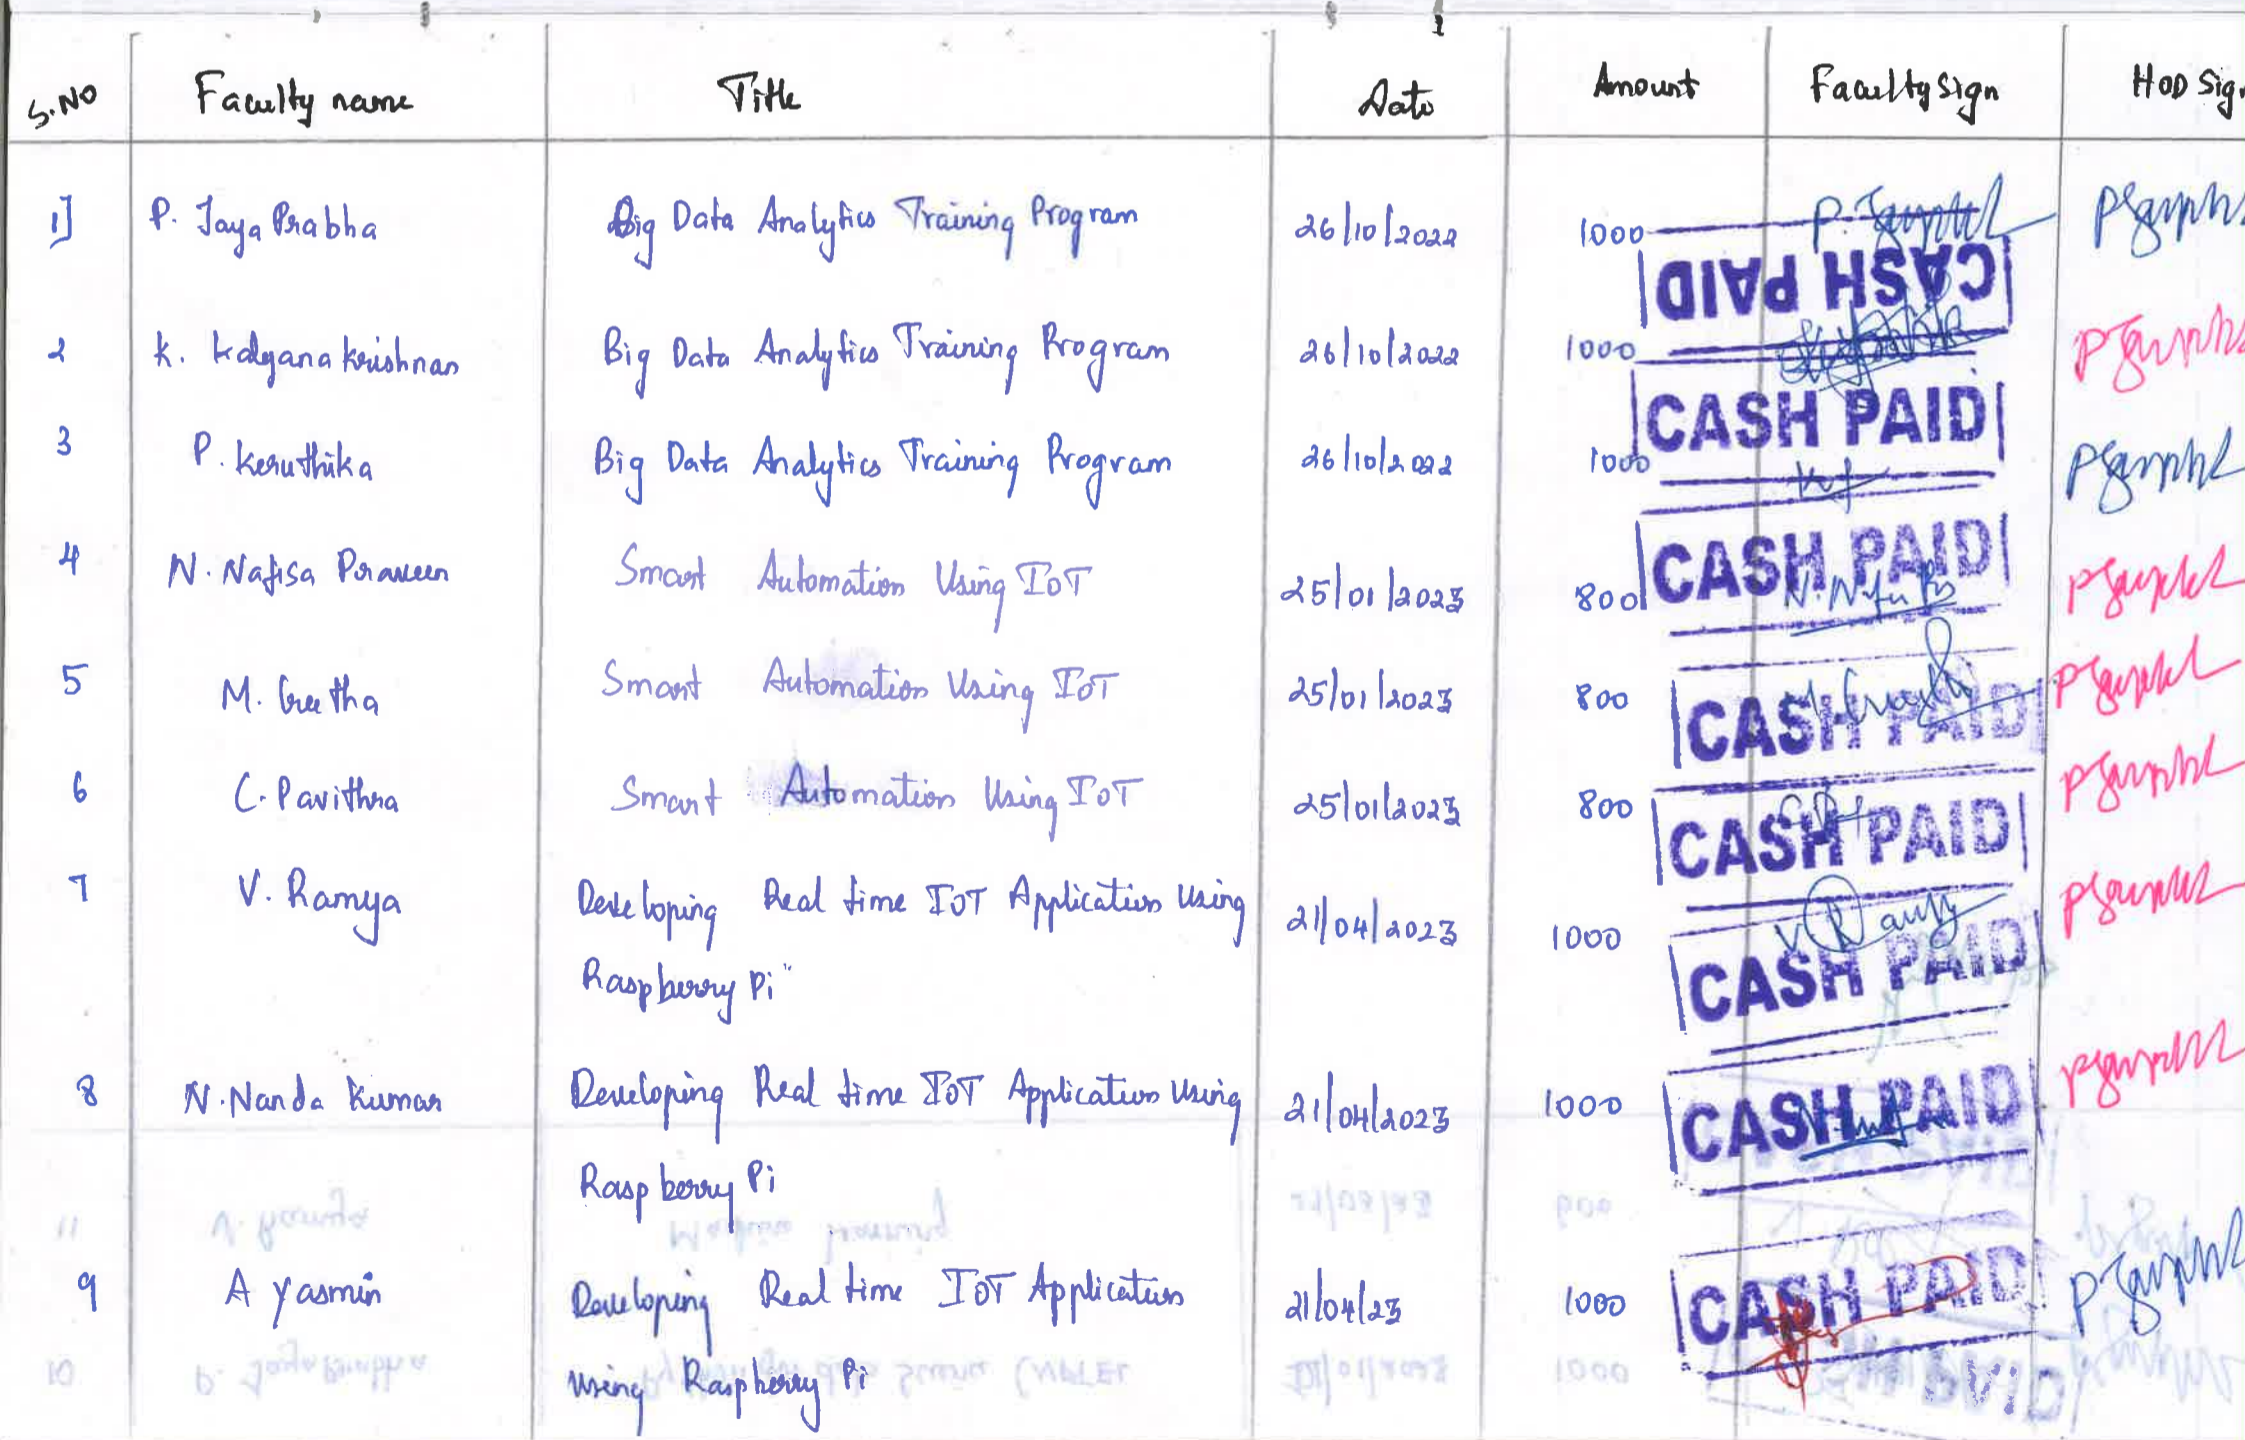 S.NO Faculty name Title Date Amount Faculty Sign HOD Sign
1] P. Jaya Prabha Big Data Analytics Training Program 26/10/2022 1000
CASH PAID
2 K. Kalyana Krishnan Big Data Analytics Training Program 26/10/2022 1000
CASH PAID
3 P. Keruthika Big Data Analytics Training Program 26/10/2022 1000
4 N. Nafisa Praveen Smart Automation Using IoT 25/01/2023 800 CASH PAID
5 M. Geetha Smart Automation Using IoT 25/01/2023 800 CASH PAID
6 C. Pavithra Smart Automation Using IoT 25/01/2023 800 CASH PAID
7 V. Ramya Developing Real time IOT Application Using 21/04/2023 1000 CASH PAID
Raspberry Pi"
8 N. Nanda Kumar Developing Real time IOT Application Using 21/04/2023 1000 CASH PAID
Raspberry Pi
9 A Yasmin Developing Real time IOT Application 21/04/23 1000 CASH PAID
Using Raspberry Pi